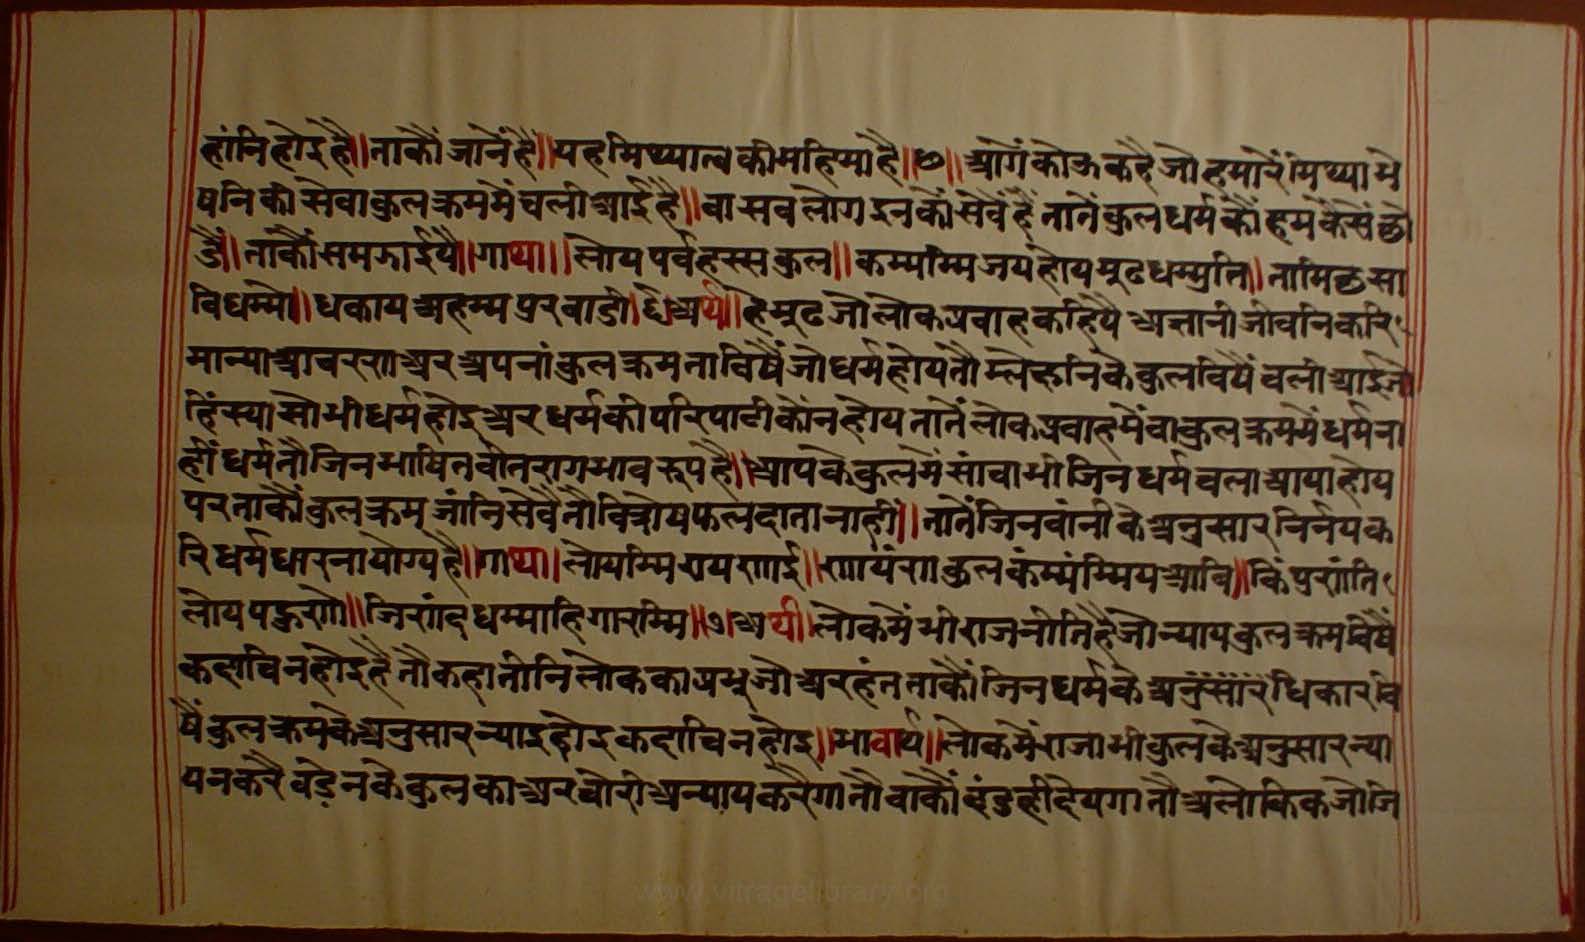 हांनि होइ है॥ ताकौं जानें है॥ यह मिथ्यात्व की महिमा है॥ ७॥ आगें कोऊ कहै जो हमारें मिथ्या मे
षनि की सेवा कुलक्रम में चली आई है॥ वा सब लोग इनकों सेवैं हैं तातें कुल धर्म कौं हम कैसें छो
डैं॥ ताकौं समझाईयै॥ गाथा॥ लोय पर्वहस्स कुल॥ कम्मंम्मि जय होय मूढ धम्मुति॥ तामिछसा
विधम्मो॥ धकाय अहम्म परवाडी॥ अर्थ॥ हे मूढ जो लोक प्रवाह कहियै अज्ञानी जीवनि करि
मान्या आचरण अर अपनां कुलक्रम ता विषैं जो धर्म होय तौ म्लेछनि के कुल विषैं चली आई जो
हिंस्या सो भी धर्म होइ अर धर्म की परिपाटी कौंन होय तातें लोक प्रवाह में वा कुलक्रम में धर्म ना
हीं धर्म तौ जिन भाषित वीतराग भाव रूप है॥ आपके कुल में सांचा भी जिन धर्म चला आया होय
पर ताकौं कुलक्रम जांनि सेवै तौ फलदाता नाहीं॥ तातें जिनवांनी के अनुसार निर्नय क
रि धर्म धारना योग्य है॥ गाथा॥ लोयम्मि राय णाई॥ णायं ण कुल कंम्यंम्मि य आवि॥ किं पुणंति
लोय पहुणो॥ जिणंद धम्माहि गारम्मि॥ अर्थ॥ लोक में भी राजनीति है जो न्याय कुलक्रम विषैं
कदाचि न होइ है तौ कहा तीनि लोक का प्रभु जो अरहंत ताकौं जिन धर्म के अनुंसारं धिकार वि
षैं कुलक्रम के अनुसार न्याइ होइ कदाचि न होइ॥ भावार्थ॥ लोक में राजा भी कुल के अनुसार न्या
य न करै बडेनके कुल का अर चोरी अन्याय करैगा तौ वाकौं दंड ही देयगा तौ अलोकिक जो जि
www.vitragelibrary.org